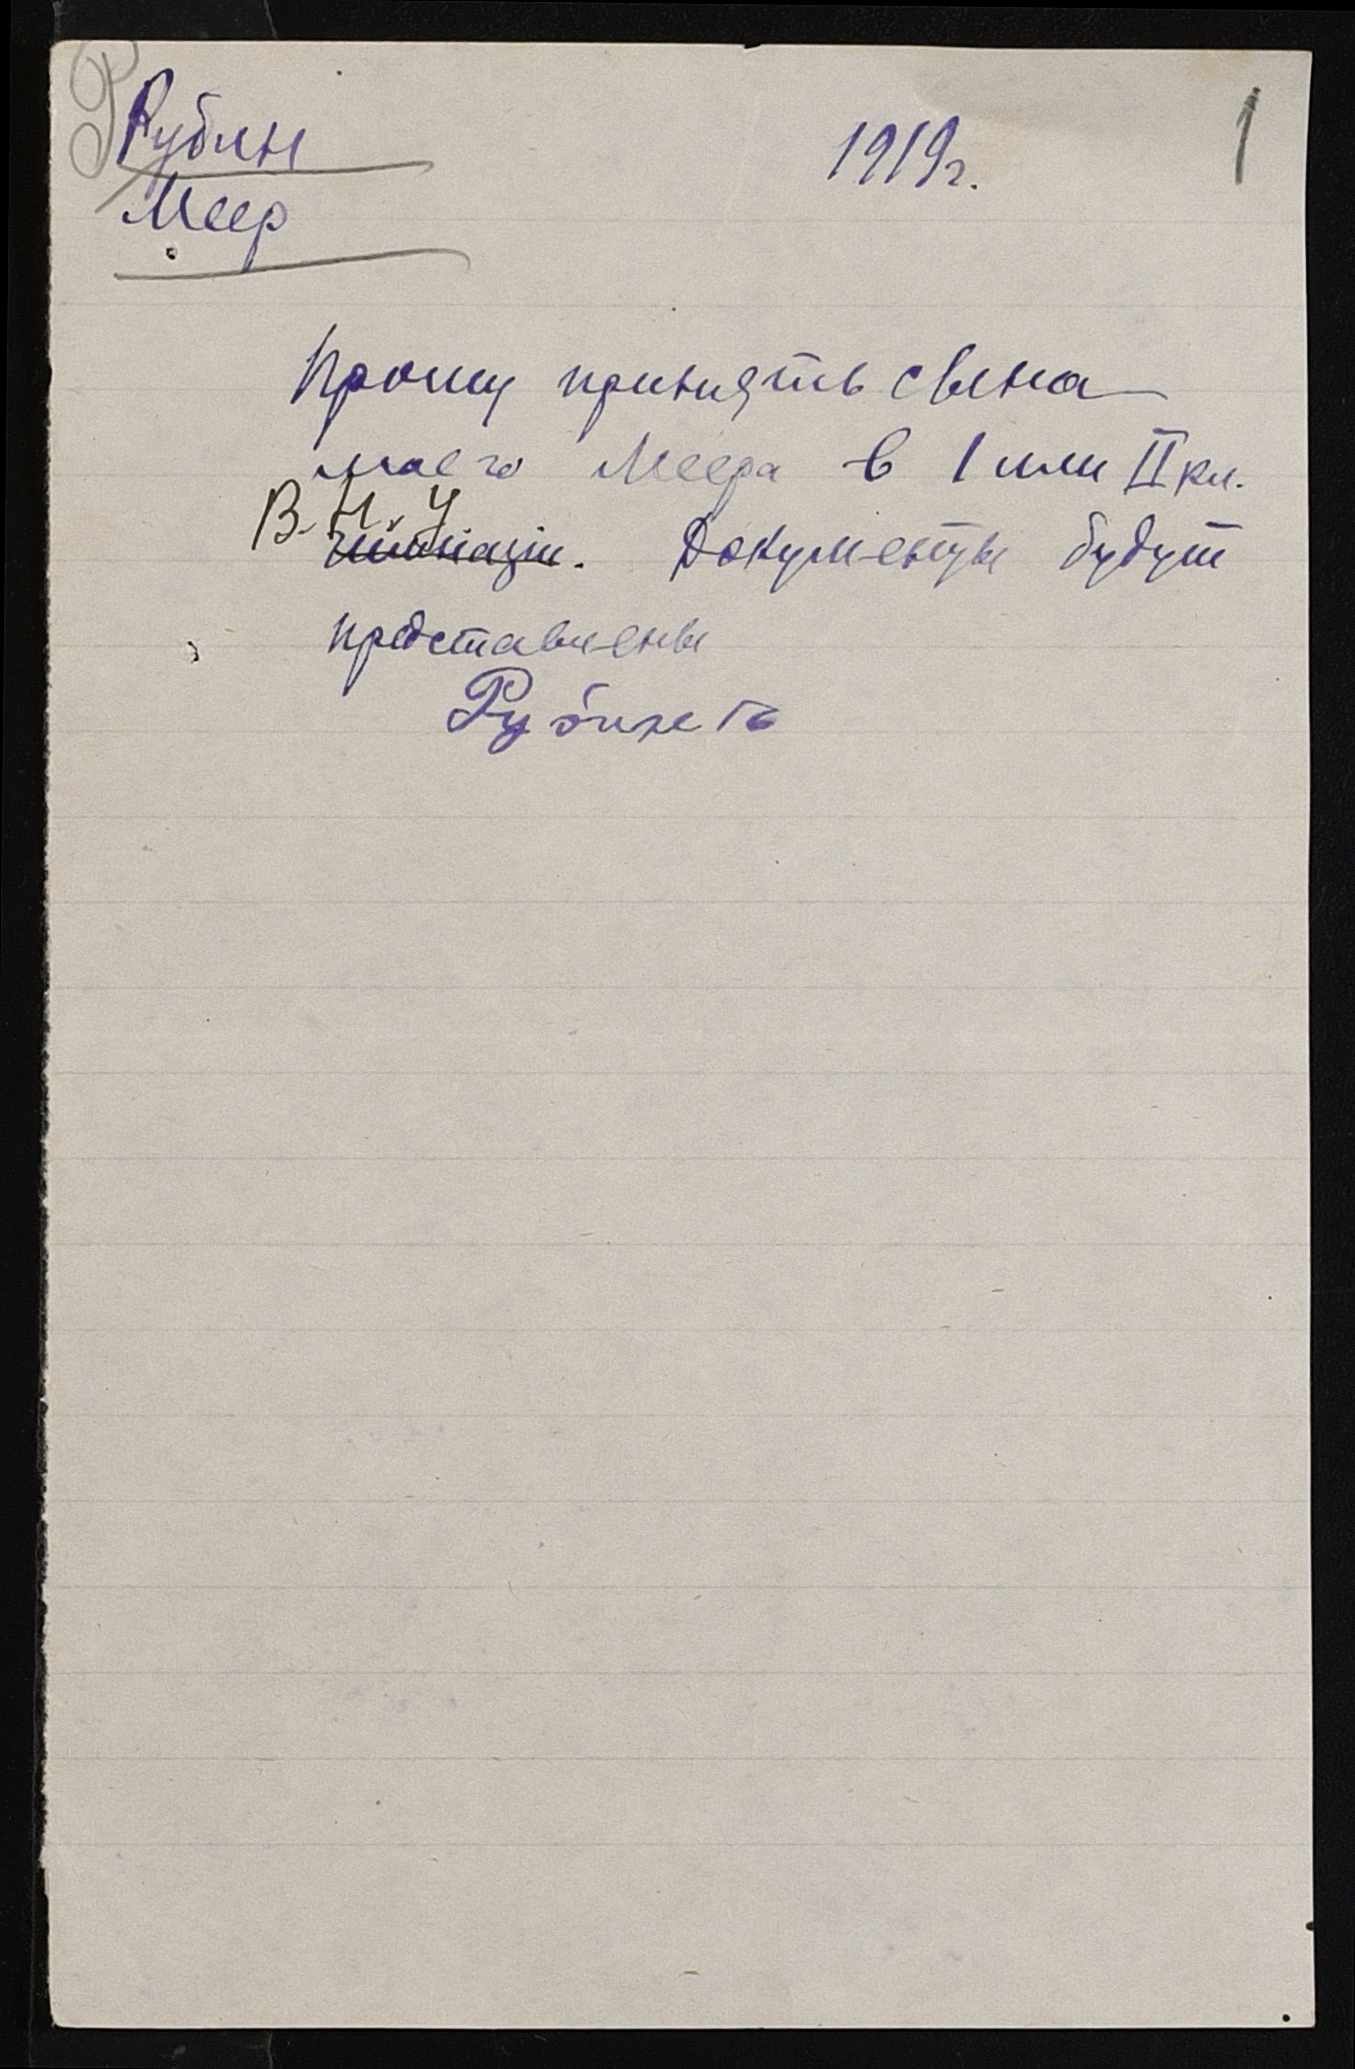 Рубин
Меер
1919 г.
1
Прошу принять сына
моего Меера в I или II кл.
В. Н. У.
гимназіи. Документы будут
представлены
Рубинъ